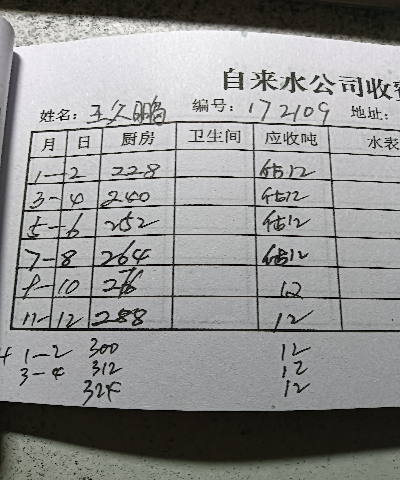 自来水公司收
姓名: 王久鹏 编号: 172109 地址:
月 日 厨房 卫生间 应收吨 水表
1-2 228 估12
3-4 240 估12
5-6 252 估12
7-8 264 估12
9-10 276 12
11-12 288 12
1-2 300 12
3-4 312 12
324 12